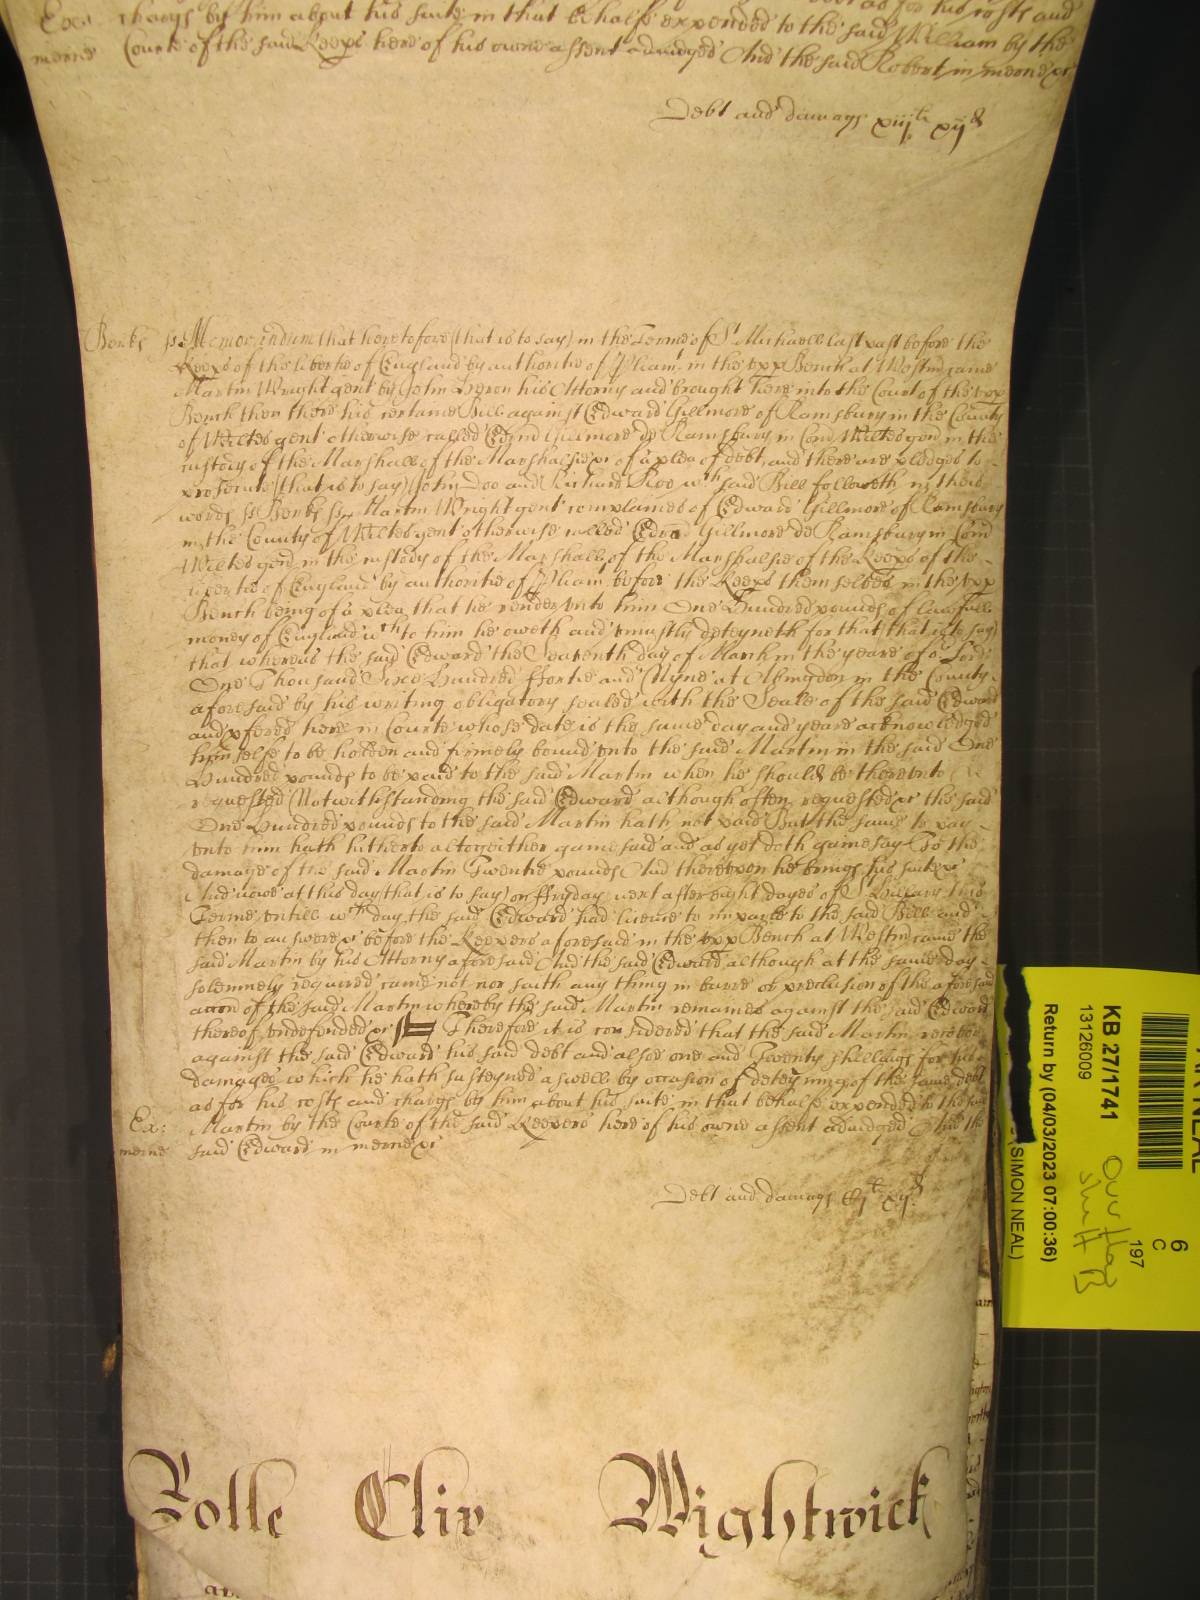 charges by him about his suite in that behalfe expended to the said William by the
Courte of the said Keeps here of his owne assent adiudged And the said Robert in mercie &c
mercie
Debt and damages xiijli xijd
Berks ss Memorandum that heretofore (that is to say) in the Terme of St Michaell last past before the
Keeps of the libertie of England by authoritie of Pliamt in the vpp Bench at Westm came
Martin Wright gent by John Heron his Attorny and brought here into the Court of the vpp
Bench then there his certaine Bill against Edward Gillmore of Ramsbury in the County
of Wiltes gent otherwise called Edrd Gillmore de Ramsbury in Com Wiltes gen in the
custody of the Marshall of the Marshalsie &c of a plea of debt, and there are pledges to
prosecute (that is to say) John Doo and Richard Roo wch said Bill followeth in theis
words ss Berks ss Martin Wright gent complaines of Edward Gillmore of Ramsbury
in the County of Wiltes gent otherwise called Edrd Gillmore de Ramsbury in Com
Wiltes gen in the custody of the Marshall of the Marshalsie of the Keeps of the
libertie of England by authoritie of Pliamt before the Keeps themselves in the vpp
Bench being of a plea that he render vnto him One Hundred pounds of lawfull
money of England wch to him he oweth and vniustly deteyneth for that (that is to say)
that whereas the said Edward the Seaventh day of March in the yeare of or Lord
One Thousand Sixe Hundred ffortie and Nyne at Abingdon in the County
aforesaid by his writing obligatory sealed with the Seale of the said Edward
and pfered here in Courte whose date is the same day and yeare acknowledged
himselfe to be holden and firmely bound vnto the said Martin in the said One
Hundred pounds to be paid to the said Martin when he should be therevnto
requested Notwithstanding the said Edward although often requested &c the said
One Hundred pounds to the said Martin hath not paid But the same to pay
vnto him hath hitherto altogeither gainesaid and as yet doth gainesay To the
damage of the said Martin Twentie pounds And therevpon he brings his suite &c
And nowe at this day (that is to say) on ffryday next after eight dayes of St Hillary this
Terme vntill wch day the said Edward had licence to imparle to the said Bill and
then to answere &c before the Keepers aforesaid in the vpp Bench at Westm came the
said Martin by his Attorny aforesaid And the said Edward although at the same day
solemnely required came not nor saith any thing in barre or preclusion of the aforesaid
accon of the said Martin whereby the said Martin remaines against the said Edward
thereof vndefended &c Therefore it is considered that the said Martin recover
against the said Edward his said debt and alsoe one and Twenty shillings for his
damages which he hath susteyned aswell by occasion of deteyning of the same debt
as for his costs and charges by him about his suite in that behalfe expended to the said
Ex: Martin by the Courte of the said Keepers here of his owne assent adiudged And the
mercie said Edward in mercie &c
Debt and damages Cjli xijd
Rolle Cliv Wightwick
KB 27/1741
13126009
Return by (04/03/2023 07:00:36)
(SIMON NEAL)
6
C
197